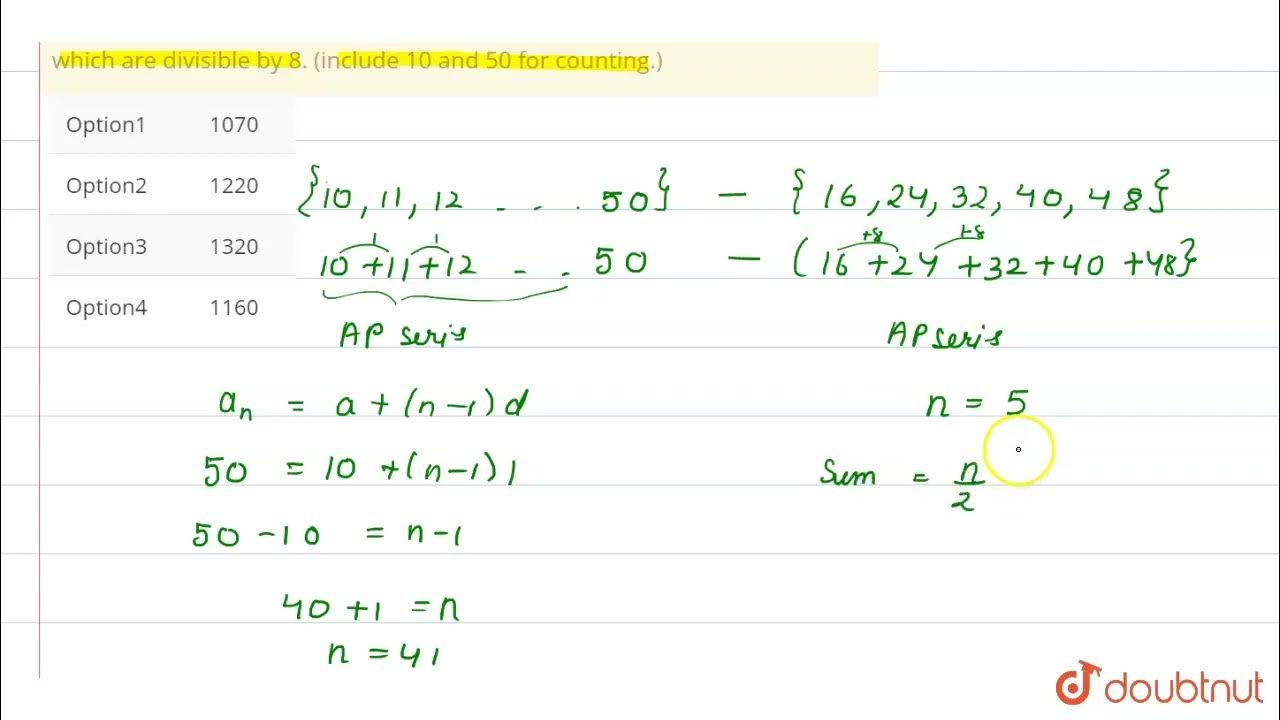 which are divisible by 8. (include 10 and 50 for counting.)
Option1 1070
Option2 1220
Option3 1320
Option4 1160
{10, 11, 12 - - . 50} - {16, 24, 32, 40, 48}
1 1 +8 +8
10 +11 +12 - - 50 - (16 +24 +32 +40 +48}
AP seris AP seris
an = a + (n-1) d n = 5
50 = 10 +(n-1) 1 Sum = n/2
50 -10 = n-1
40 +1 = n
n = 41
doubtnut